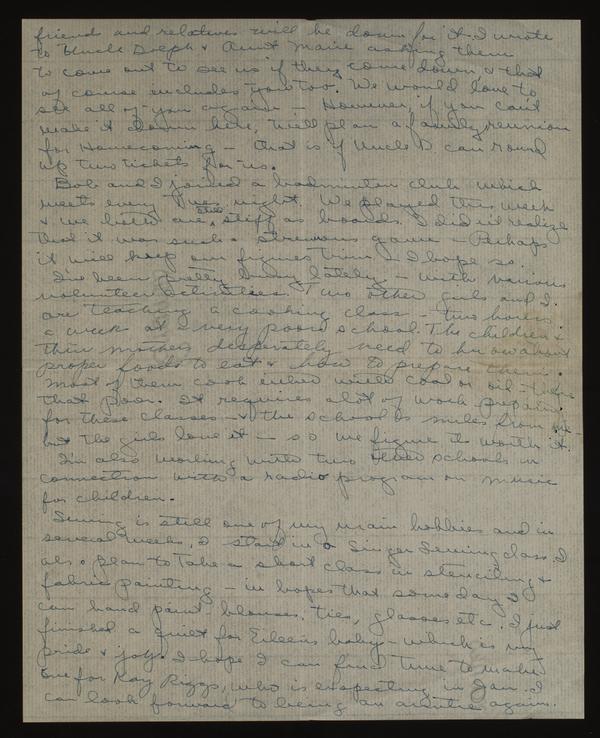 friends and relatives will be down for it. I wrote
to Uncle Dolph & Aunt Marie asking them
to come out to see us if they come down & that
of course includes you too. We would love to
see all of you again - However, if you can't
make it down here, we'll plan a family reunion
for Homecoming - that is if Uncle D can round
up two tickets for us.
Bob and I joined a badminton club which
meets every Tues. night. We played this week
& we both are still stiff as boards. I didn't realize
that it was such a strenuous game - Perhaps
it will keep our figures trim. I hope so.
I've been pretty busy lately - with various
volunteer activities. Two other girls and I
are teaching a cooking class - two hours
a week at a very poor school. The children &
their mothers desperately need to know about
proper foods to eat & how to prepare them.
Most of them cook either with coal or oil - they're
that poor. It requires a lot of work preparing
for these classes - & the school is miles from
but the girls love it - so we figure its worth it.
I'm also working with two other schools in
connection with a radio program on music
for children.
Sewing is still one of my main hobbies and in
several weeks, I start in a Singer Sewing class. I
also plan to take a short class in stenciling &
fabric painting - in hopes that some day I
can hand paint blouses, ties, glasses etc. I just
finished a quilt for Eileen's baby - which is my
pride & joy. I hope I can find time to make
one for Kay Riggs, who is expecting in Jan. I
can look forward to being an auntie again.